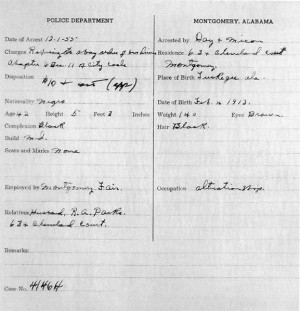 POLICE DEPARTMENT
MONTGOMERY, ALABAMA
Date of Arrest 12-1-55
Arrested by Day & Mixon
Charges Refusing to obey orders of bus driver
Residence 634 Cleveland Court
Chapter 6 Sec. 11 City Code
Montgomery
Disposition $10 & cost (app)
Place of Birth Tuskegee Ala.
Nationality Negro
Date of Birth Feb. 4 1913.
Age 42 Height 5 Feet 3 Inches
Weight 140 Eyes Brown
Complexion Black
Hair Black
Build Med
Scars and Marks None
Employed by Montgomery Fair.
Occupation
Relatives Husband, R. A. Parks.
634 Cleveland Court.
Remarks:
Case No.